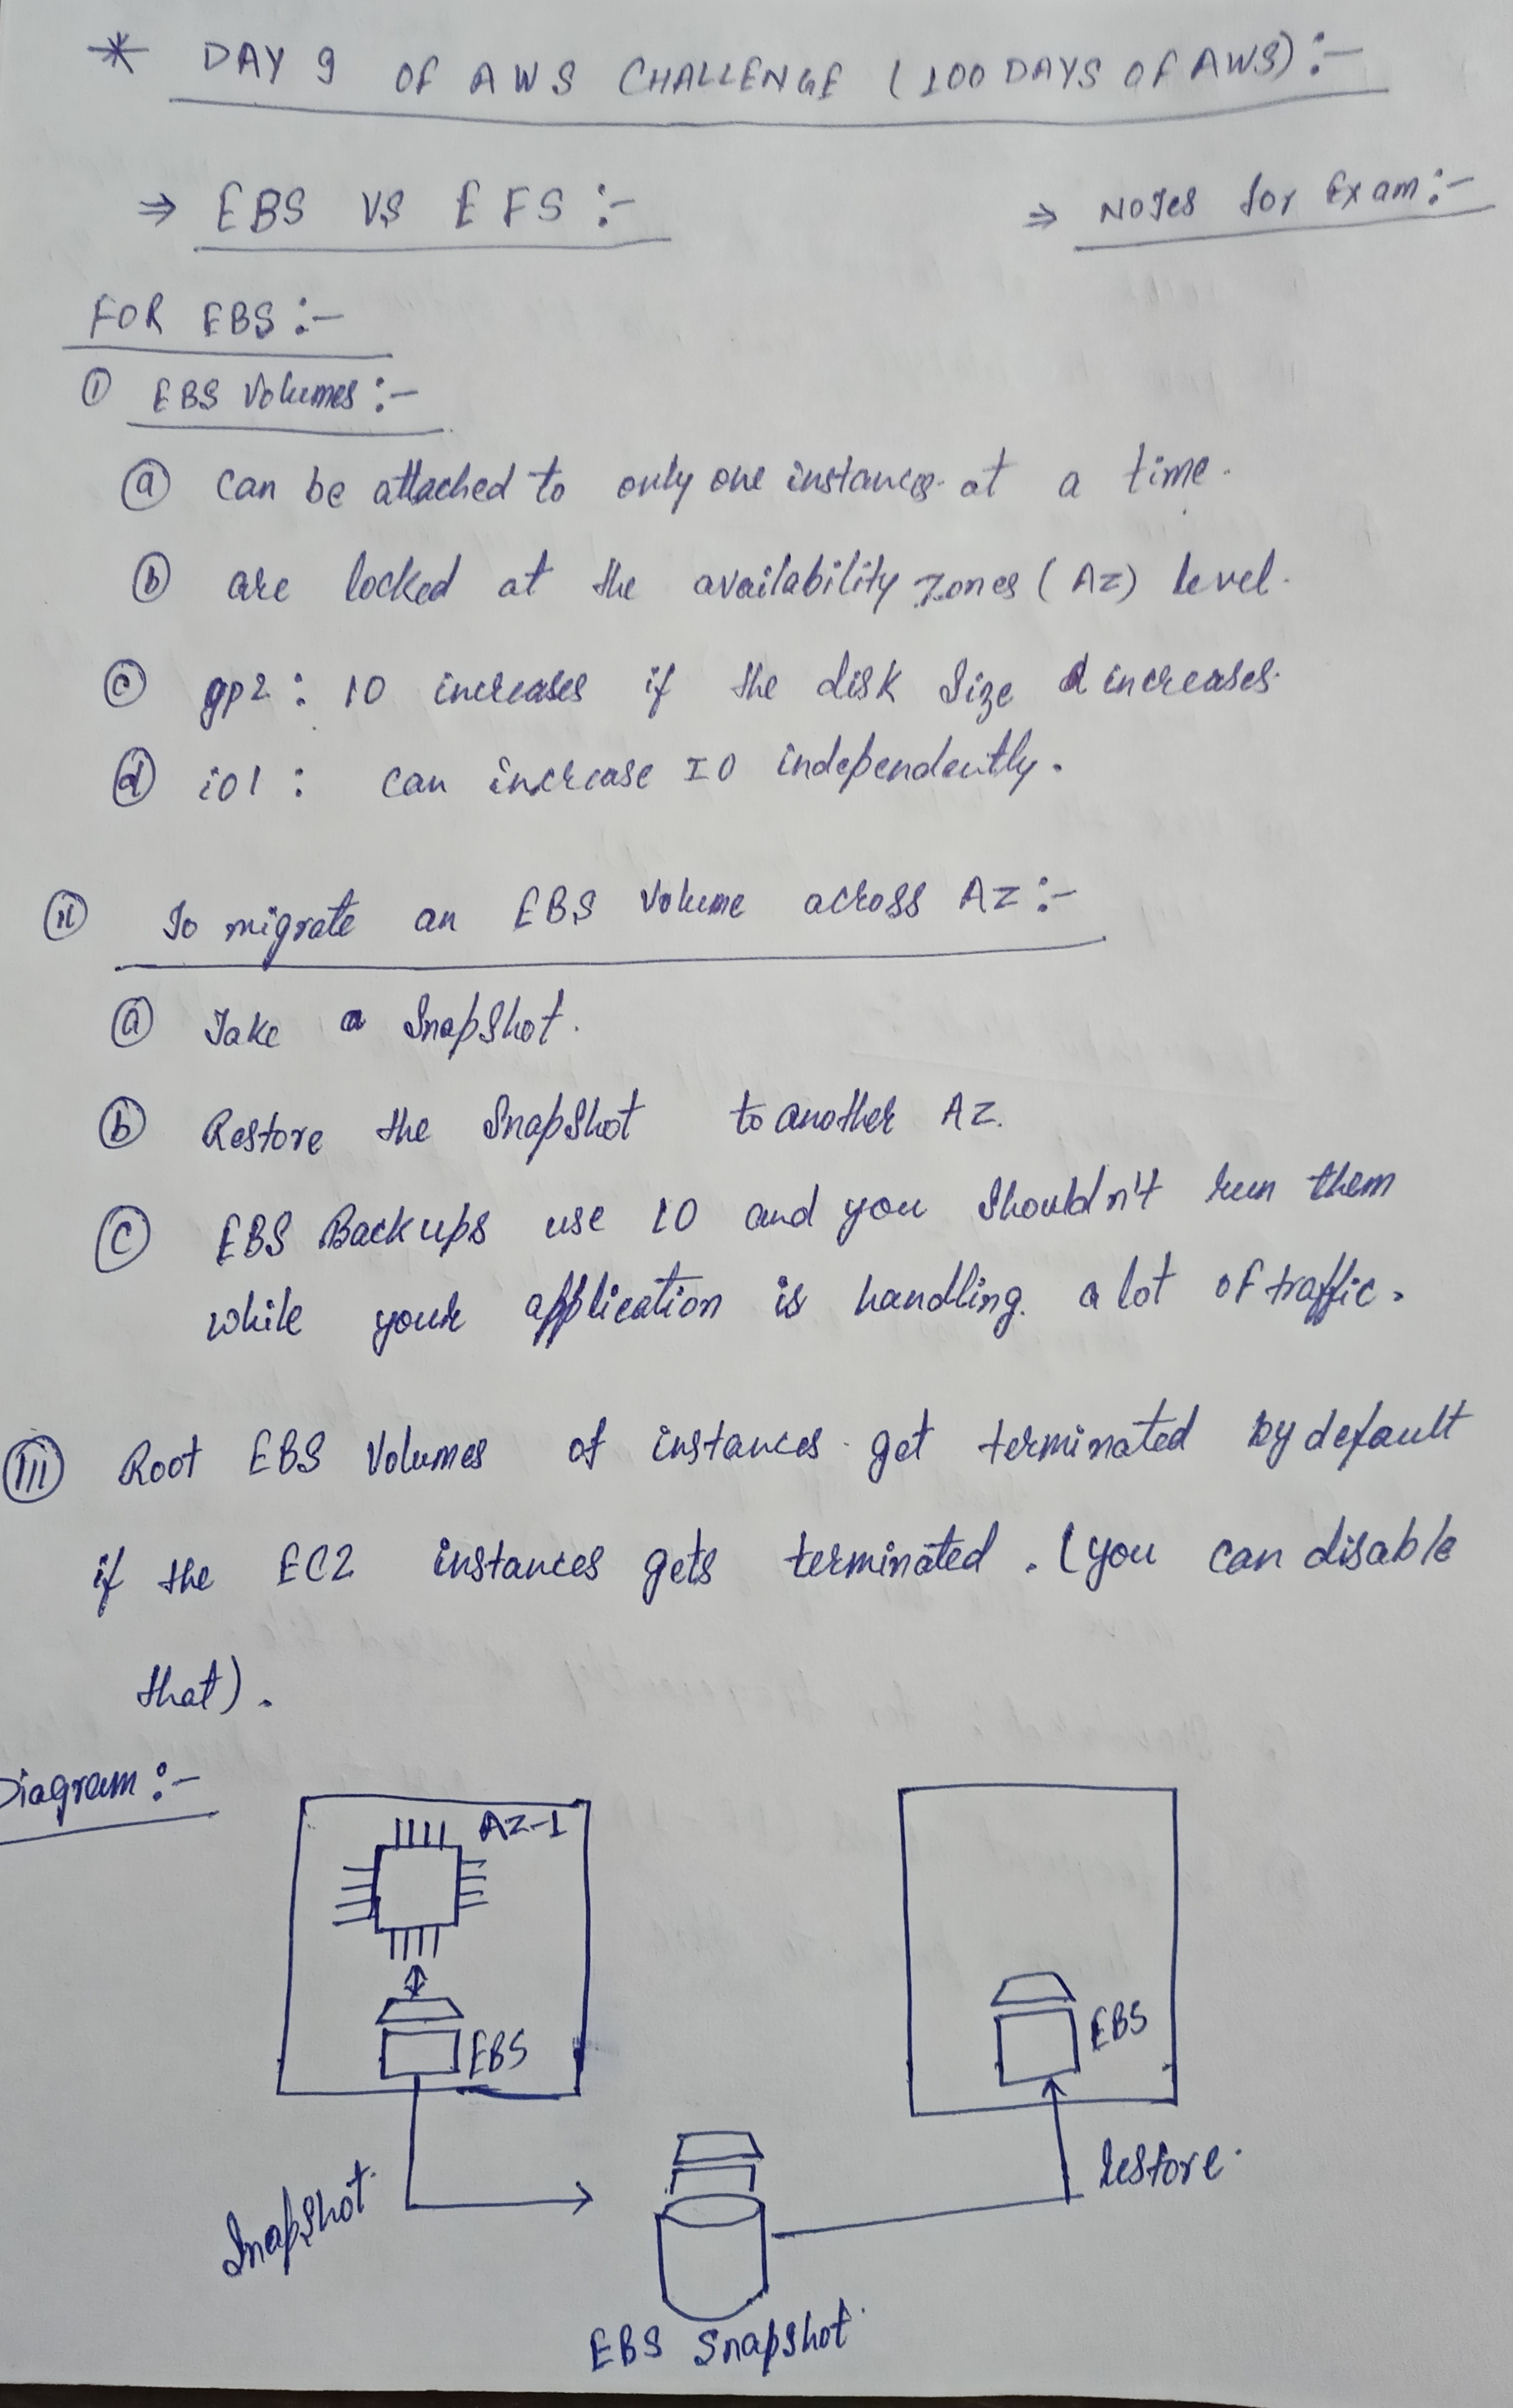 * DAY 9 OF AWS CHALLENGE (100 DAYS OF AWS):-
⇒ EBS VS EFS:-
⇒ Notes for Exam:-
FOR EBS:-
① EBS Volumes:-
ⓐ can be attached to only one instances at a time.
ⓑ are locked at the availability zones (AZ) level.
ⓒ gp2: IO increases if the disk size increases.
ⓓ io1: can increase IO independently.
ⓘⓘ To migrate an EBS Volume across AZ:-
ⓐ Take a Snapshot.
ⓑ Restore the Snapshot to another AZ.
ⓒ EBS Backups use IO and you shouldn't run them
while your application is handling a lot of traffic.
ⓘⓘⓘ Root EBS Volumes of instances get terminated by default
if the EC2 instances gets terminated. (you can disable
that).
Diagram:-
AZ-1
EBS
EBS
Snapshot.
restore.
EBS Snapshot.